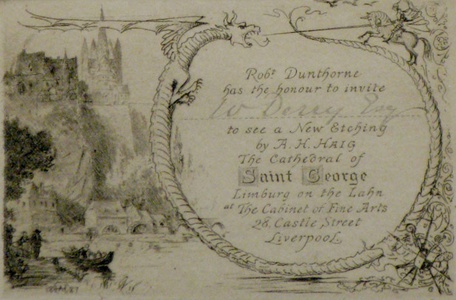 Robt Dunthorne
has the honour to invite
W Derry Esq
to see a New Etching
by A. H. HAIG
The Cathedral of
Saint George
Limburg on the Lahn
at The Cabinet of Fine Arts
26, Castle Street
Liverpool